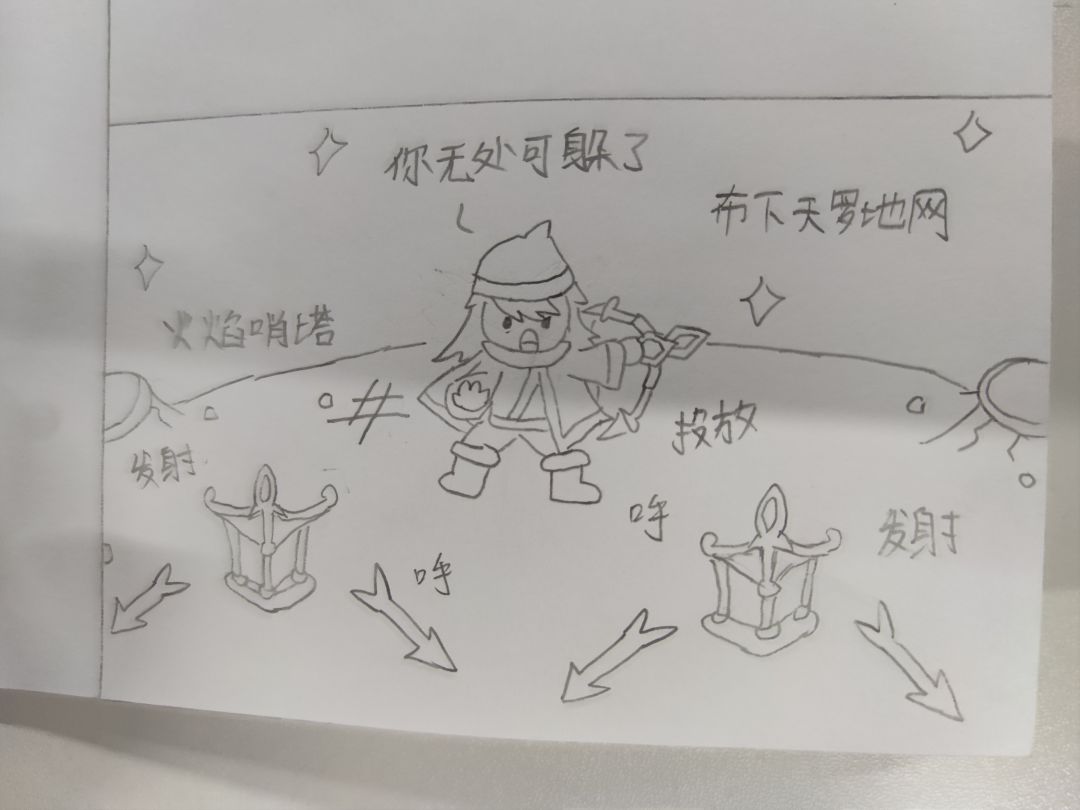 你无处可躲了
布下天罗地网
火焰哨塔
投放
发射
呼
发射
呼